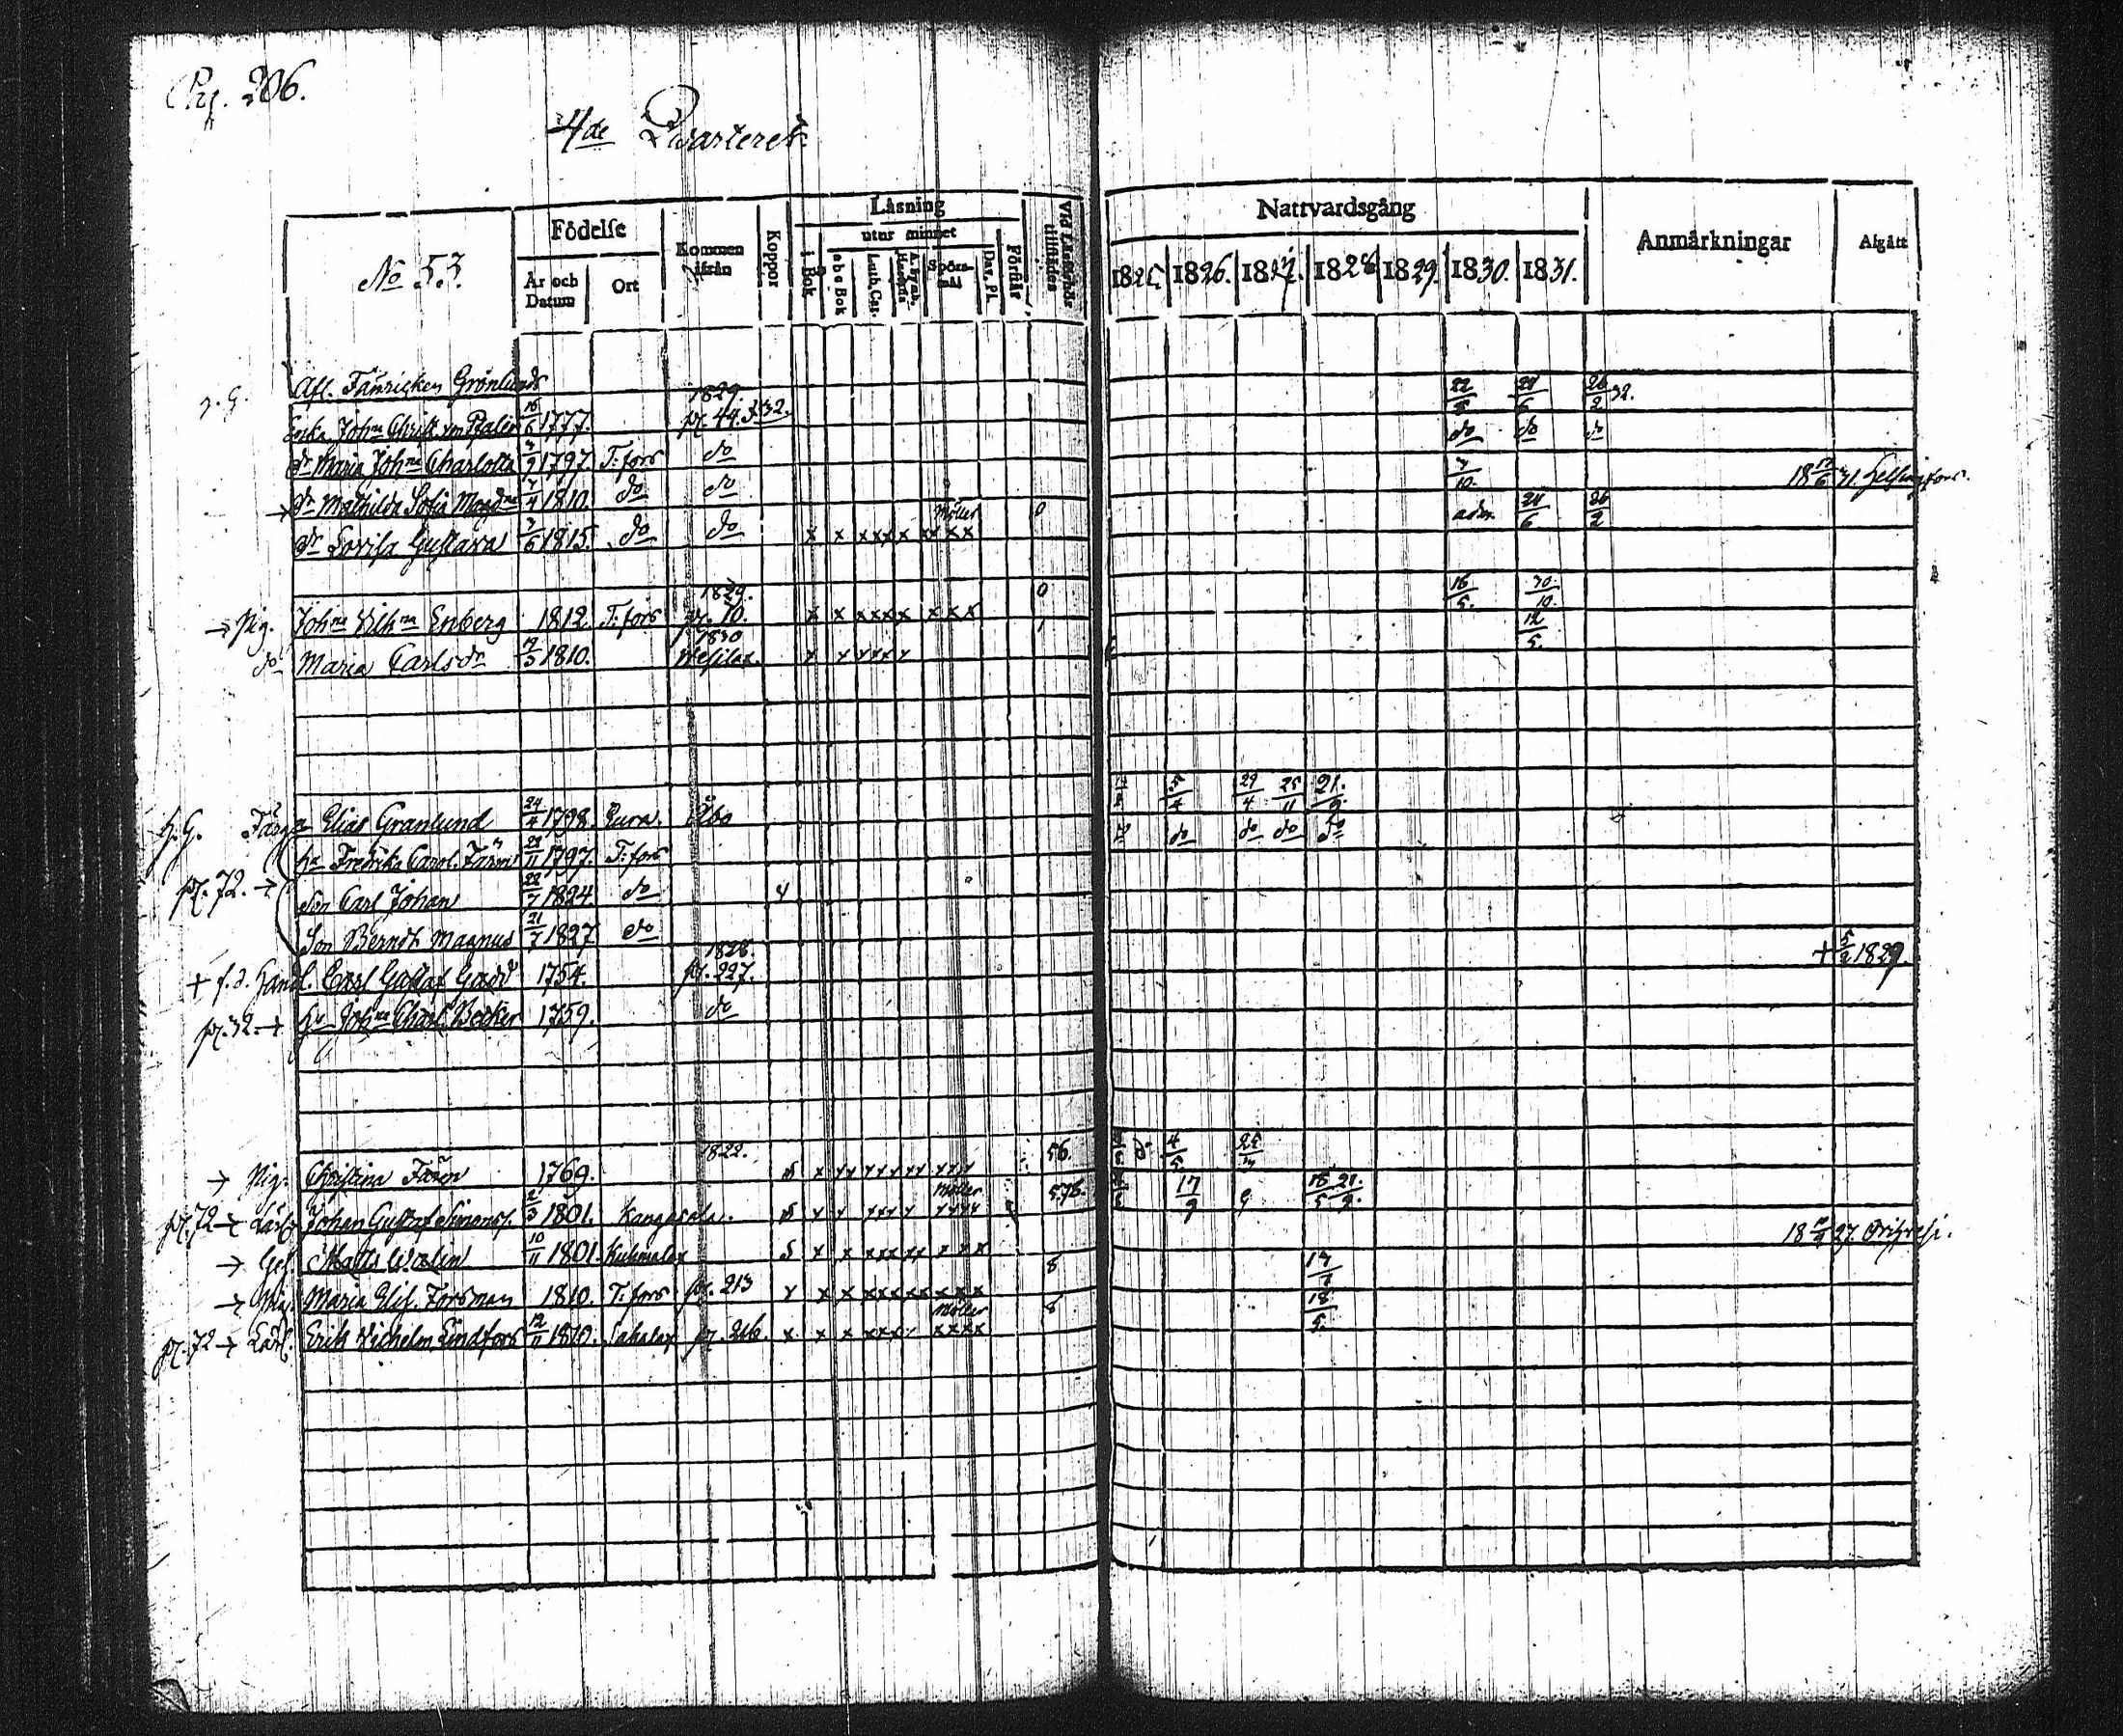 Pag. 206.
4de Quarteret.
No 53.
Födelse
År och Datum
Ort
Kommen ifrån
Koppor
Läsning
i Bok
utur minnet
abc Bok
Luth. Cat.
Spörsmål
Dav. Ps.
Förstår
Vid Läseförhör tillstädes
Nattvardsgång
1825. 1826. 1827. 1828 1829. 1830. 1831.
Anmärkningar
Afgått
Afl. Fänricken Grönlunds 1829. 22/8 24/6 26/2 32.
Enka Johna Christ. von Pfaler 16/6 1777. pag. 44. 332. do do do
dr Maria Johna Charlotta 3/9 1797 T:fors do 3/10. 18 31. Helsingfors.
→ dr Mathilda Sofia Magdna 7/4 1810. do do adm. 24/6 26/2
dr Lovisa Gustava 3/6 1815. do do x x xxxx Möller xxxx 0
→ Pig. Johna Vilhna Enberg 1812. T:fors 1829. pag. 70. x x xxxx xxx 0 16/5. 30/10.
do Maria Carlsdr 17/3 1810. 1830 Wesilax. x x xxxx 1 12/5.
h.G. Färg. Elias Granlund 24/4 1798. Eura. Åbo 5/4 29/4 25/11 21./9.
hu Fredrika Carol. Färm 28/11 1797. T:fors do do do do
pag. 72. → Son Carl Johan 22/7 1824 do 4
Son Berndt Magnus 21/7 1827 do
+ f.d. Handl. Carl Gustaf Gadd 1754. 1828. pag. 227. + 5/2 1829.
pag. 32. → hu Johna Charl. Becker 1759. do
→ Pig. Christina Färm 1769. 1822. 56. 4/5. 25
pag. 72 → Lärl. Johan Gustaf Simonss. 2/3 1801. Kangasala. Möller 578. 17/9 9 18/5 21./9.
→ Ges. Matts Walin 10/11 1801. Kuhmalax 18 27. Orihvesi.
→ Pig. Maria Elis. Forsman 1810. T:fors pag. 213 8 17/7
pag. 72 → Lärl. Erik Wilhelm Lindfors 12/11 1810. Sahalax pag. 216. Möller 8 18/5.